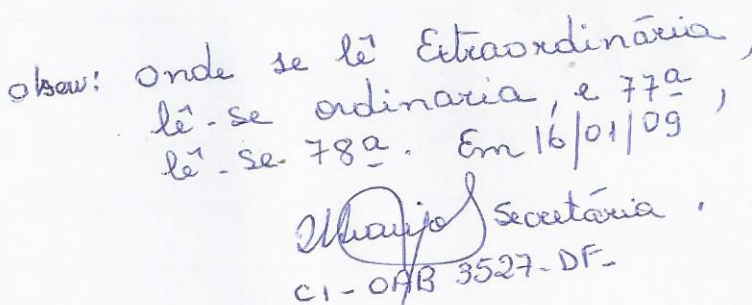 obser: Onde se lê Extraordinária,
lê-se ordinaria, e 77ª,
lê-se-78ª. Em 16/01/09
Secretária.
CI-OAB 3527-DF-